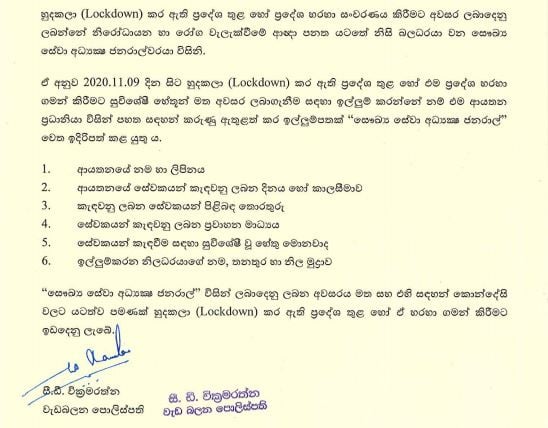 හුදකලා (Lockdown) කර ඇති ප්‍රදේශ තුළ හෝ ප්‍රදේශ හරහා සංචරණය කිරීමට අවසර ලබාදෙනු
ලබන්නේ නිරෝධායන හා රෝග වැලැක්වීමේ ආඥා පනත යටතේ නිසි බලධරයා වන සෞඛ්‍ය
සේවා අධ්‍යක්ෂ ජනරාල්වරයා විසිනි.
ඒ අනුව 2020.11.09 දින සිට හුදකලා (Lockdown) කර ඇති ප්‍රදේශ තුළ හෝ එම ප්‍රදේශ හරහා
ගමන් කිරීමට සුවිශේෂී හේතූන් මත අවසර ලබාගැනීම සඳහා ඉල්ලුම් කරන්නේ නම් එම ආයතන
ප්‍රධානියා විසින් පහත සඳහන් කරුණු ඇතුළත් කර ඉල්ලුම්පතක් “සෞඛ්‍ය සේවා අධ්‍යක්ෂ ජනරාල්”
වෙත ඉදිරිපත් කළ යුතු ය.
1. ආයතනයේ නම හා ලිපිනය
2. ආයතනයේ සේවකයන් කැඳවනු ලබන දිනය හෝ කාලසීමාව
3. කැඳවනු ලබන සේවකයන් පිළිබඳ තොරතුරු
4. සේවකයන් කැඳවනු ලබන ප්‍රවාහන මාධ්‍යය
5. සේවකයන් කැඳවීම සඳහා සුවිශේෂී වූ හේතු මොනවාද
6. ඉල්ලුම්කරන නිලධරයාගේ නම, තනතුර හා නිල මුද්‍රාව
“සෞඛ්‍ය සේවා අධ්‍යක්ෂ ජනරාල්” විසින් ලබාදෙනු ලබන අවසරය මත සහ එහි සඳහන් කොන්දේසි
වලට යටත්ව පමණක් හුදකලා (Lockdown) කර ඇති ප්‍රදේශ තුළ හෝ ඒ හරහා ගමන් කිරීමට
ඉඩදෙනු ලැබේ.
සී.ඩී. වික්‍රමරත්න
වැඩබලන පොලිස්පති
සී. ඩි. වික්‍රමරත්න
වැඩ බලන පොලිස්පති